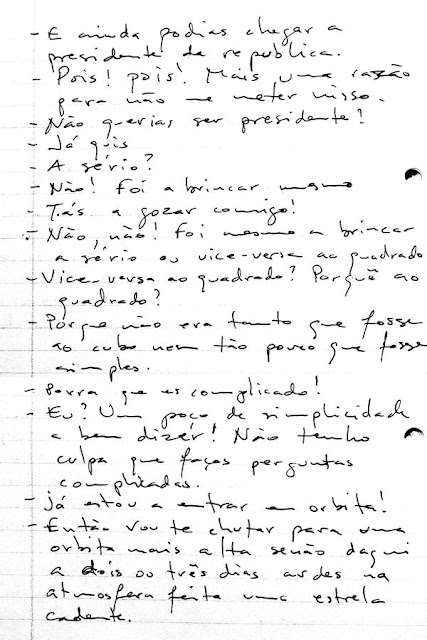 - E ainda podias chegar a
presidente da republica.
- Pois! pois! Mais uma razão
para não me meter nisso.
- Não querias ser presidente?
- Já quis
- A sério?
- Não! Foi a brincar mesmo
- Tás a gozar comigo!
- Não, não! Foi mesmo a brincar
a sério ou vice-versa ao quadrado
- Vice-versa ao quadrado? Porquê ao
quadrado?
- Porque não era tanto que fosse
ao cubo nem tão pouco que fosse
simples.
- Porra que es complicado!
- Eu? Um poço de simplicidade
a bem dizer! Não tenho
culpa que faças perguntas
complicadas.
- Já estou a entrar em orbita!
- Então vou te chutar para uma
orbita mais alta senão daqui
a dois ou três dias ardes na
atmosfera feita uma estrela
cadente.